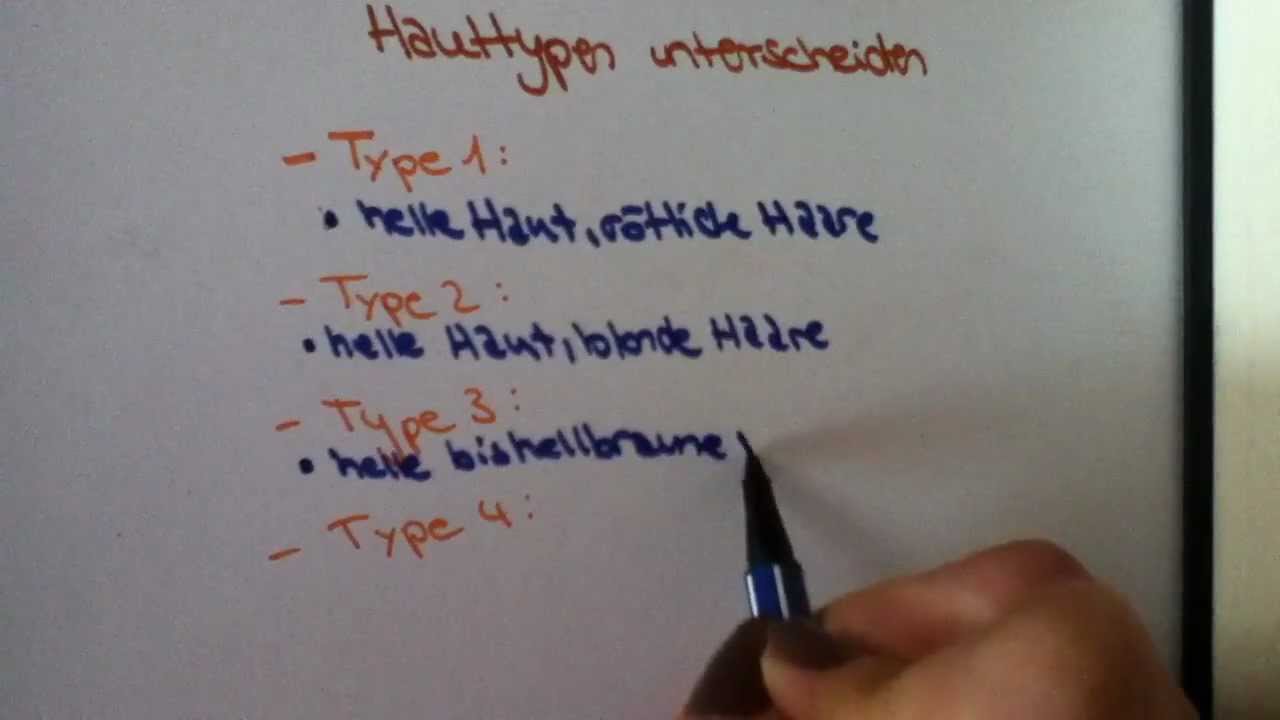 Hauttypen unterscheiden
- Type 1:
• helle Haut, rötliche Haare
- Type 2:
• helle Haut, blonde Haare
- Type 3:
• helle bis hellbraune
- Type 4: